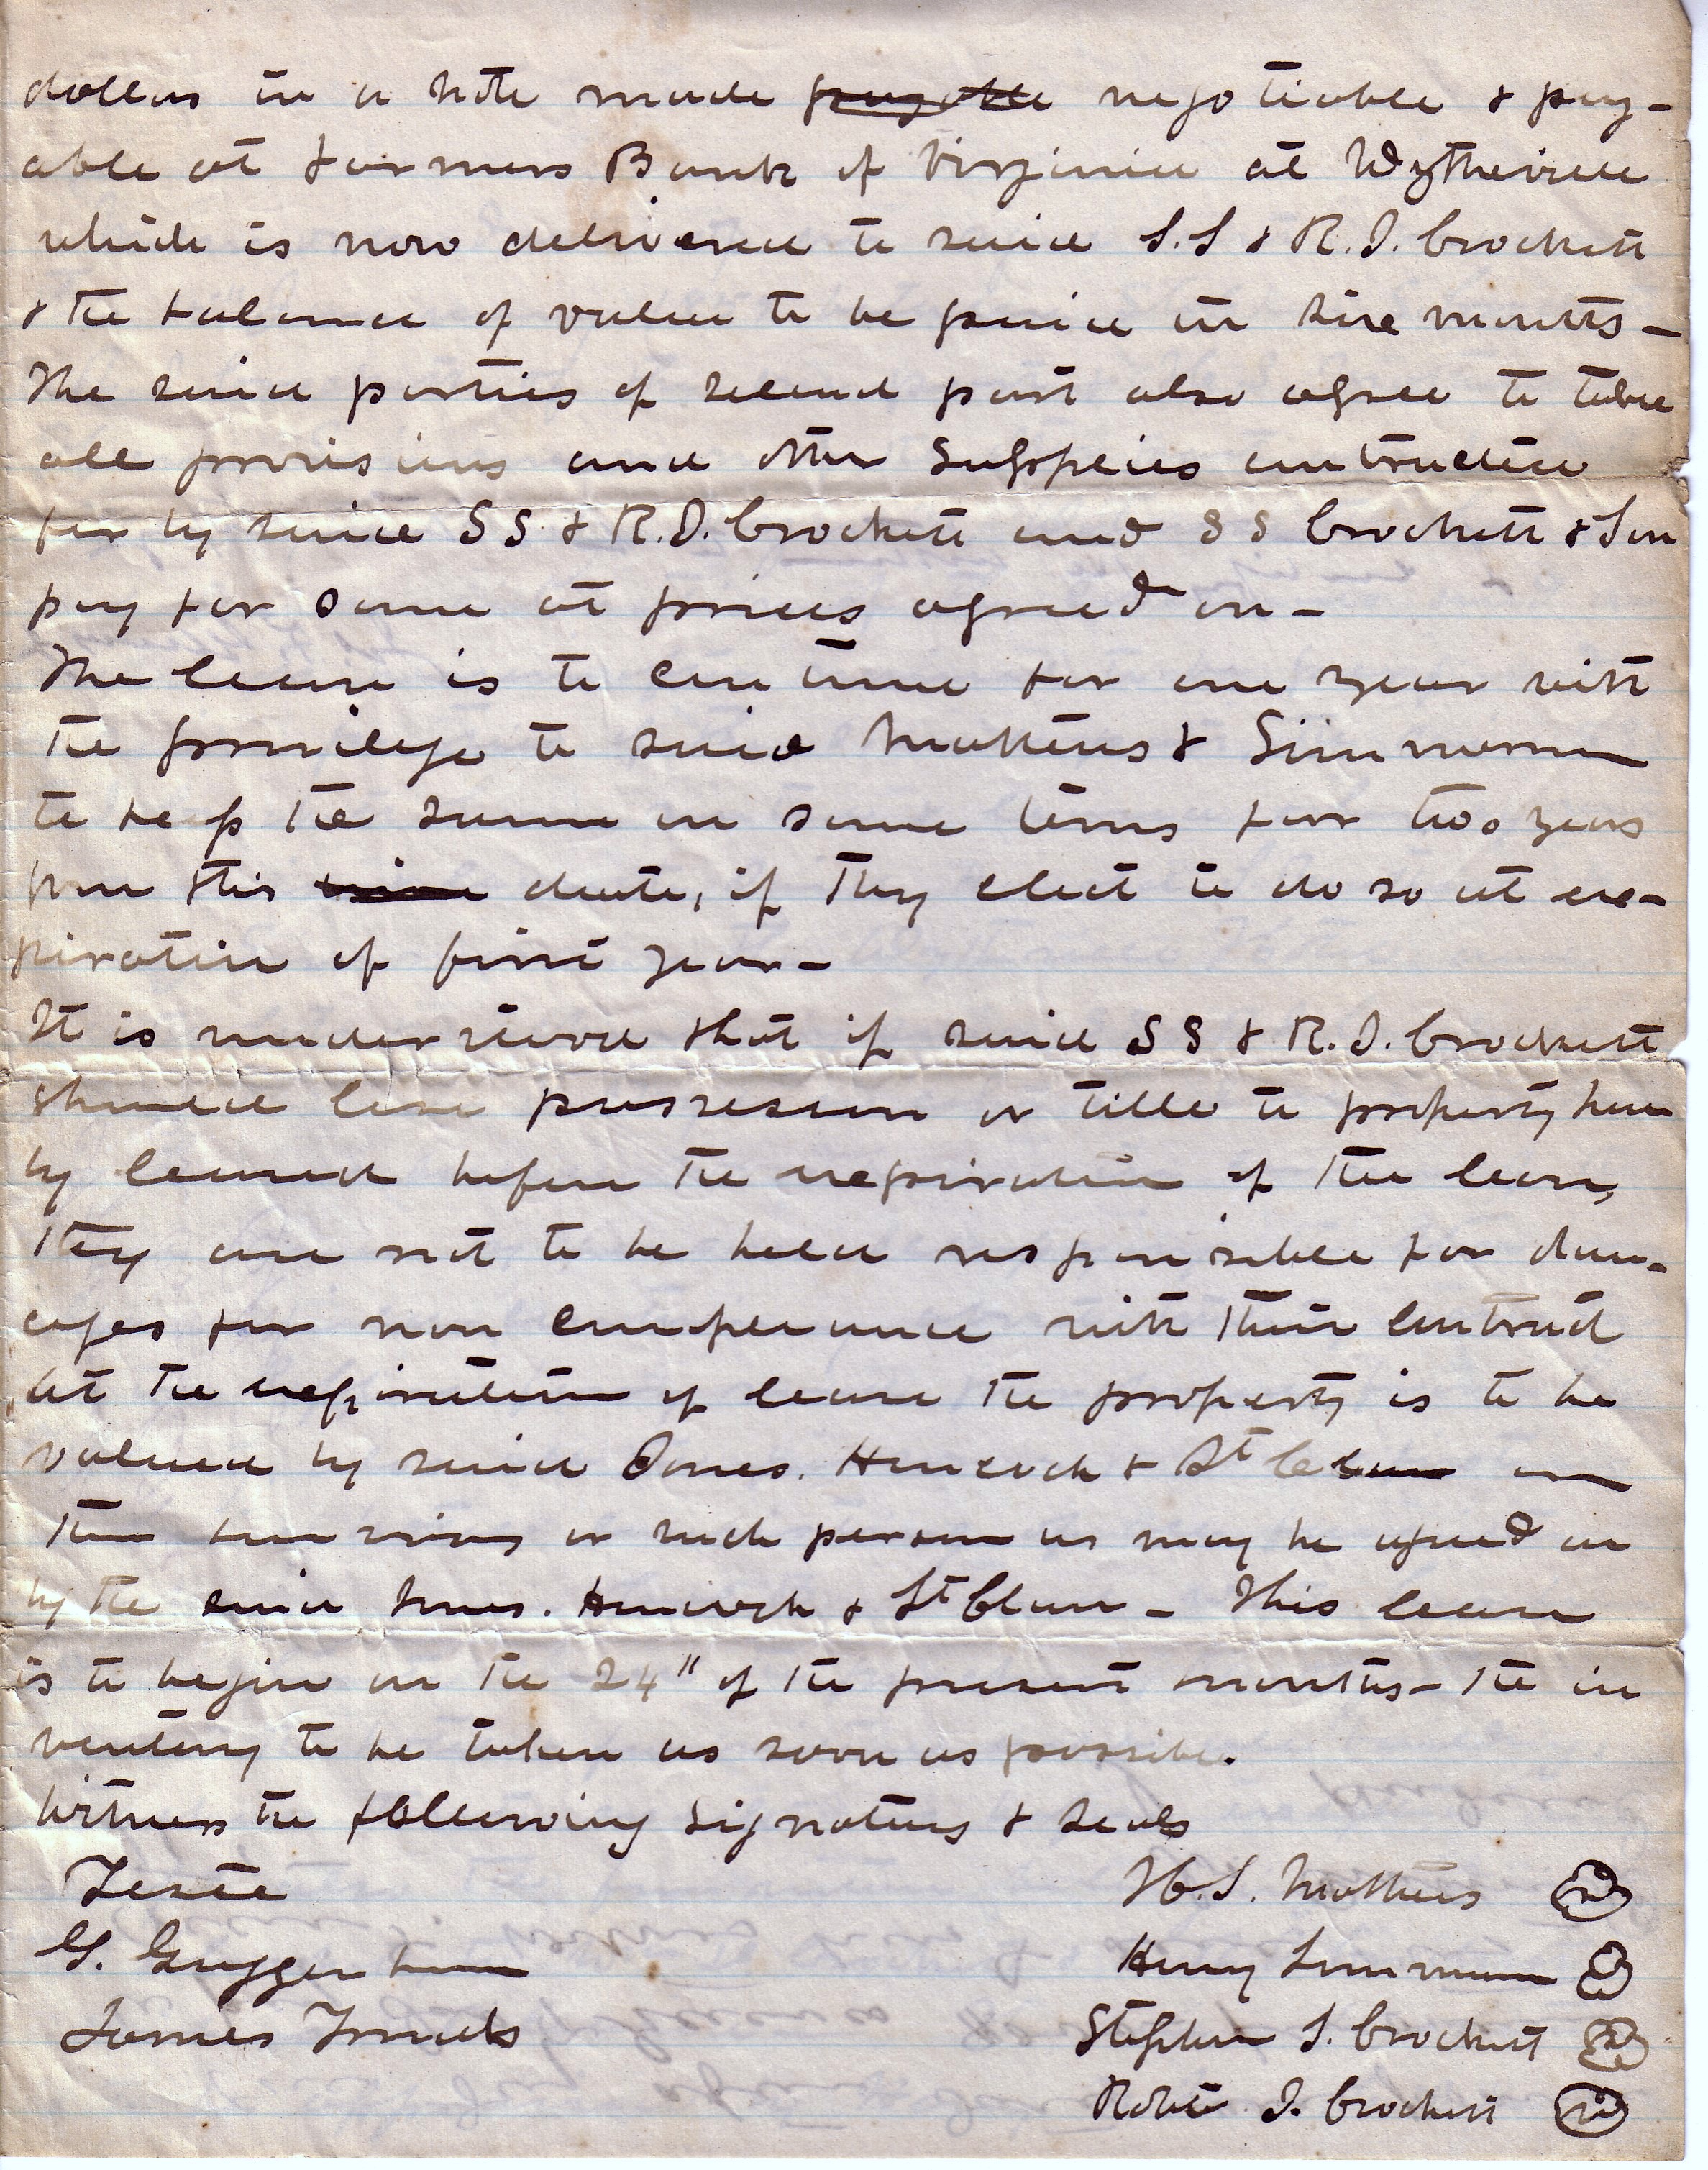 dollars in a note made payable negotiable & pay-
able at Farmers Bank of Virginia at Wytheville
which is now delivered to said S.S & R.I. Crockett
& the balance of value to be paid in six months -
The said parties of second part also agree to take
all provisions and other Supplies contracted
for by said S S & R.I. Crockett and S S Crockett & Son
pay for same at prices agreed on -
The lease is to continue for one year with
the privilege to said Mathews & Simmerman
to keep the same on same terms for two years
from this date, if they elect to do so at ex-
piration of first year -
It is understood that if said S S & R.I. Crockett
should lose possession or title to property here
by leased before the expiration of the lease,
they are not to be held responsible for dam-
ages for non compliance with their contract
At the expiration of lease the property is to be
valued by said Jones. Hancock & St Clair or
the survivors or such person as may be agreed on
by the said Jones. Hancock & St Clair - This lease
is to begin on the 24" of the present month - the in
ventory to be taken as soon as possible.
Witness the following signatures & seals
Teste H.S. Mathews
G. Guggenheim Henry Simmerman
James Stephen S. Crockett
Robt I. Crockett